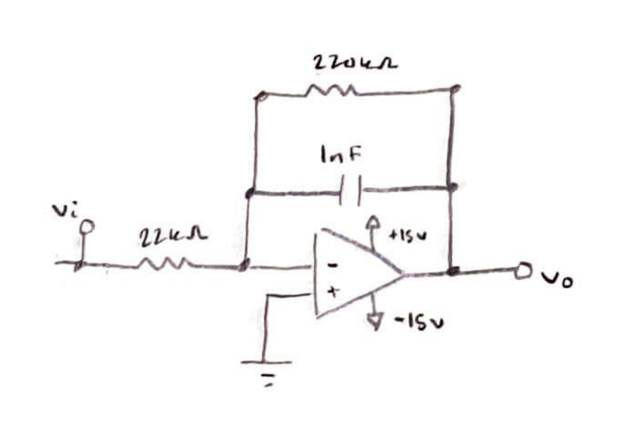 220kΩ
1nF
vi
22kΩ
+15v
-
+
vo
-15v